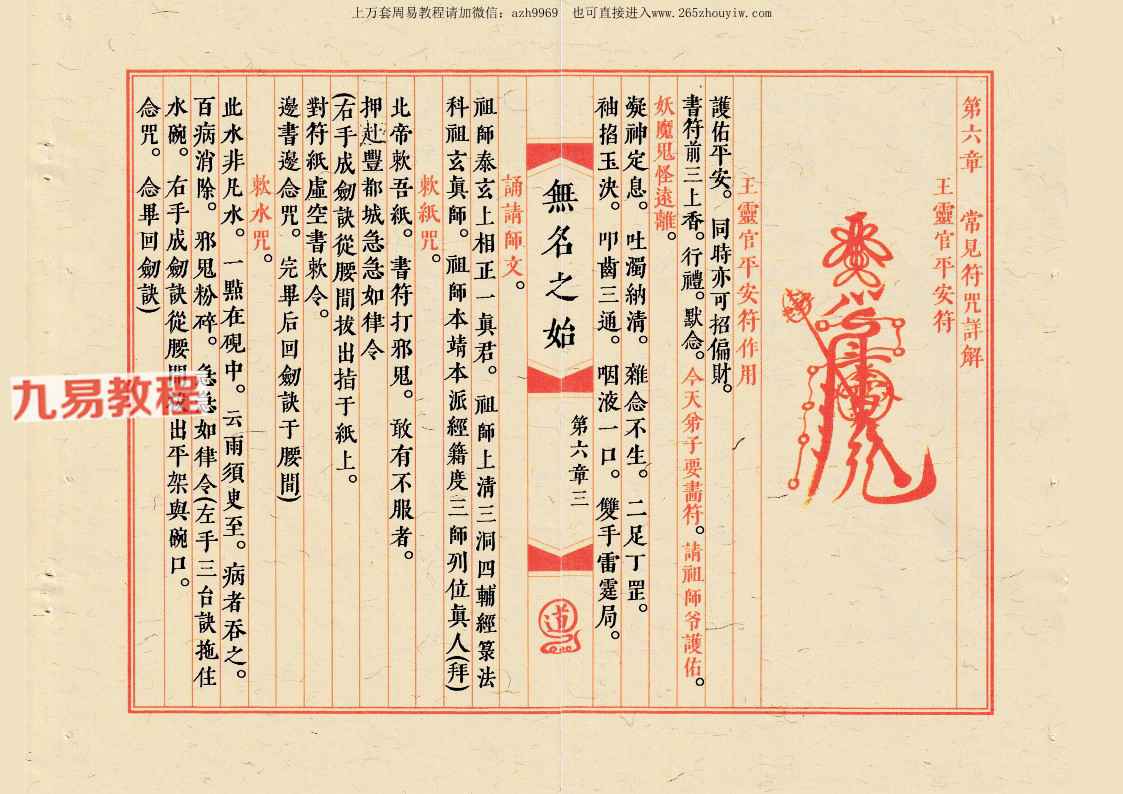 上万套周易教程请加微信：azh9969 也可直接进入www.265zhouyiw.com
第六章 常見符咒詳解
王靈官平安符
王靈官平安符作用
護佑平安。同時亦可招偏財。
書符前三上香。行禮。默念。今天弟子要畵符。請祖師爷護佑。
妖魔鬼怪遠離。
凝神定息。吐濁納清。雜念不生。二足丁罡。
袖掐玉决。叩齒三通。咽液一口。雙手雷霆局。
無名之始
第六章三
道
誦請師文。
祖師泰玄上相正一眞君。祖師上清三洞四輔經箓法
科祖玄眞師。祖師本靖本派經籍度三師列位眞人(拜)
敕紙咒。
北帝敕吾紙。書符打邪鬼。敢有不服者。
押赴豐都城急急如律令
(右手成劍訣從腰間拔出指于紙上。
對符紙虛空書敕令。
邊書邊念咒。完畢后回劍訣于腰間)
敕水咒。
此水非凡水。一點在硯中。云雨須臾至。病者吞之。
百病消除。邪鬼粉碎。急急如律令(左手三台訣拖住
水碗。右手成劍訣從腰間拔出平架與碗口。
念咒。念畢回劍訣)
九易教程